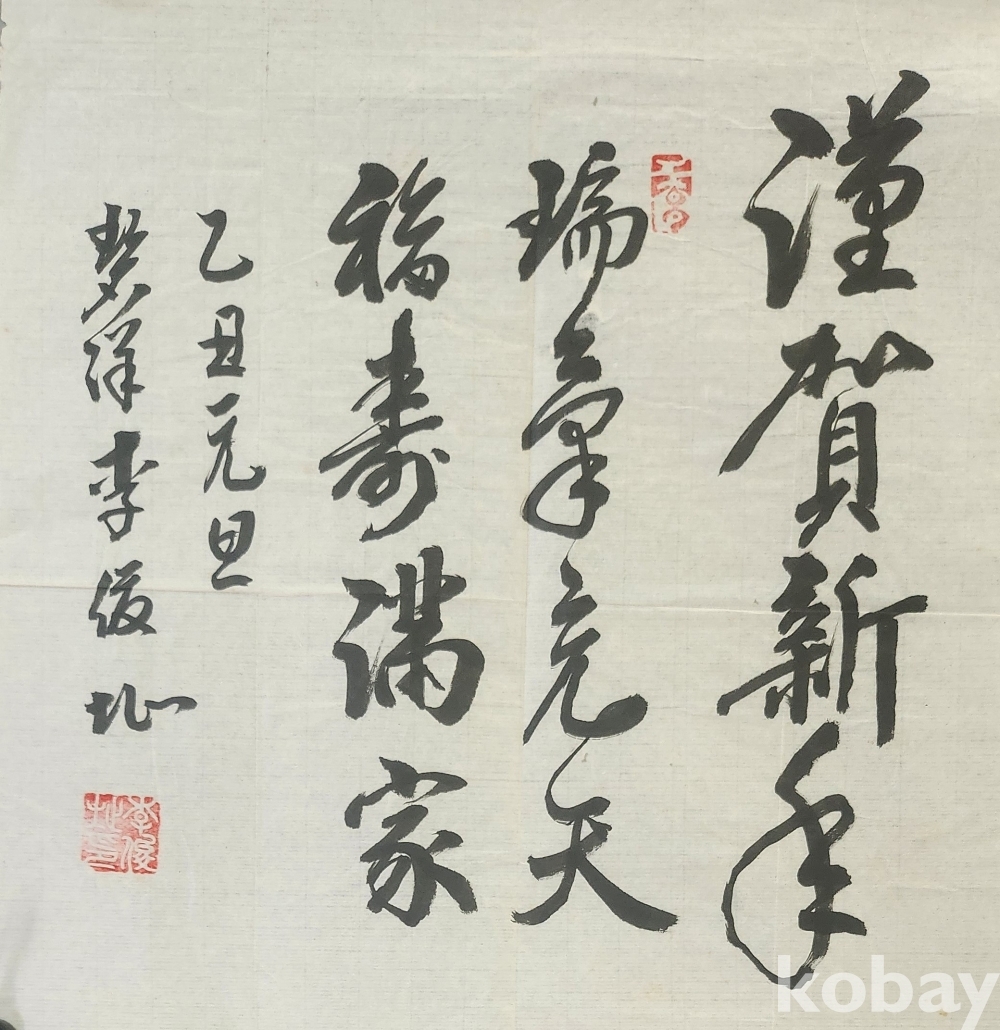 謹賀新年
瑞氣充天
福壽滿家
乙丑元旦
碧洋李俊址
kobay